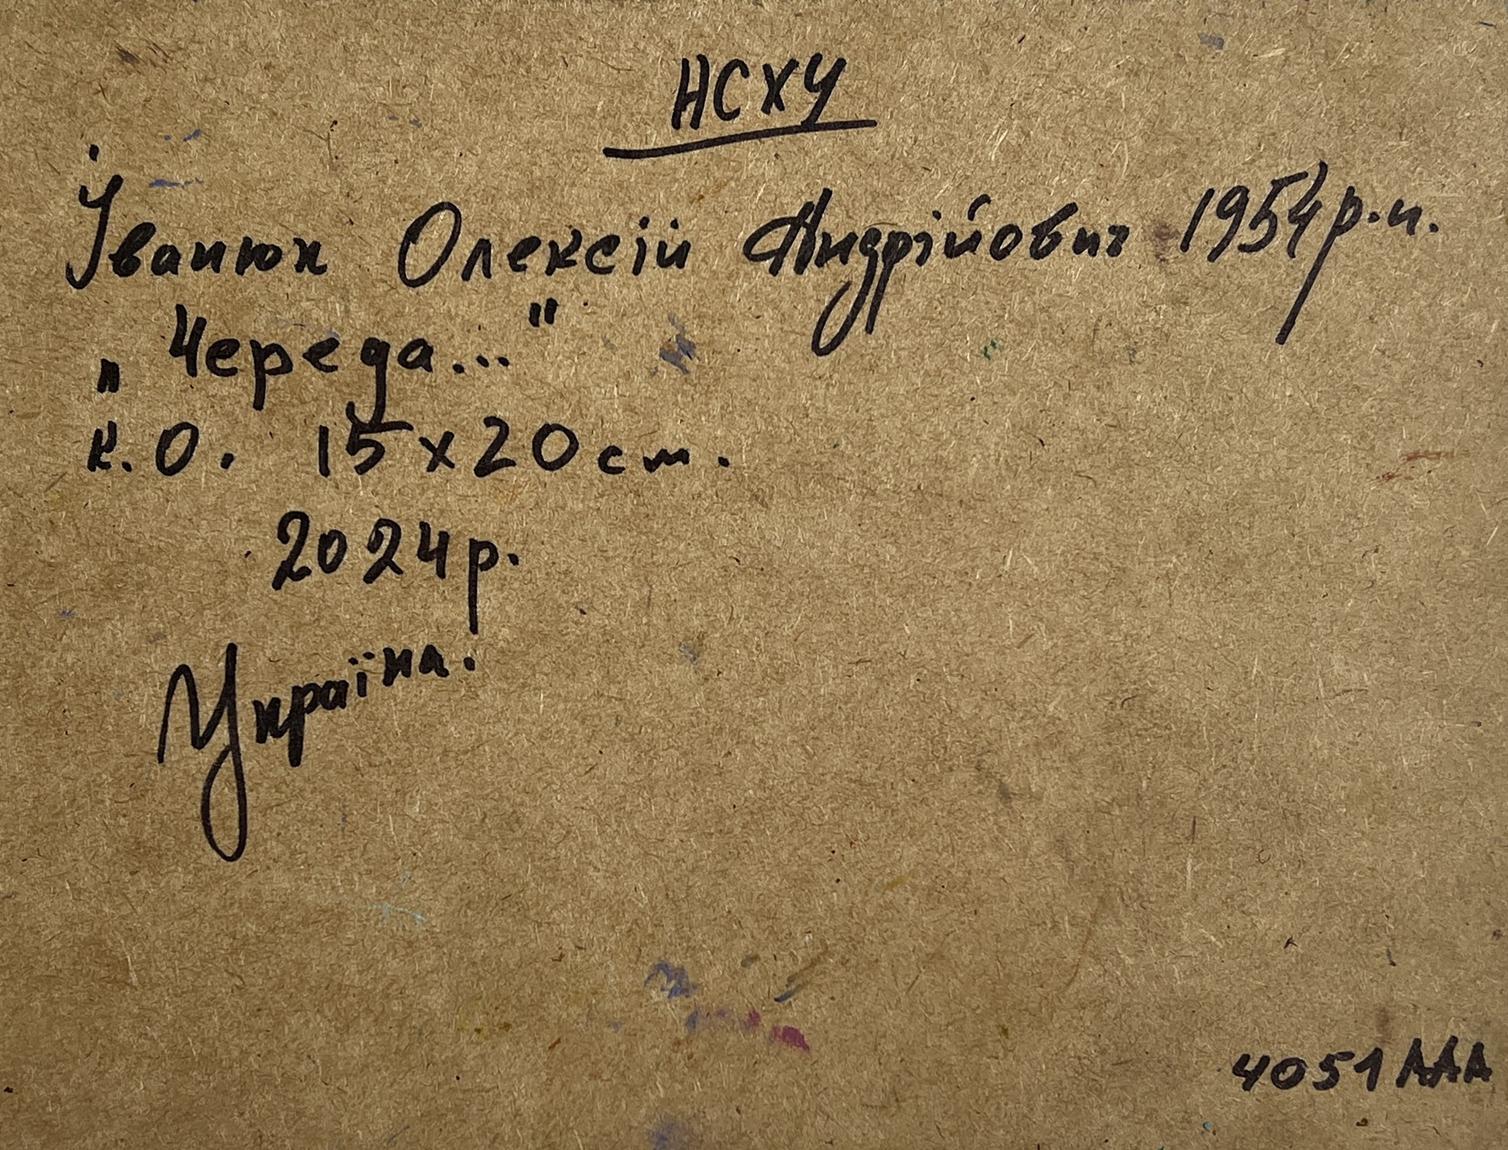 НСХУ
Іванюк Олексій Андрійович 1954р.н.
„Череда..."
к.о. 15х20см.
2024р.
Україна.
4051ААА